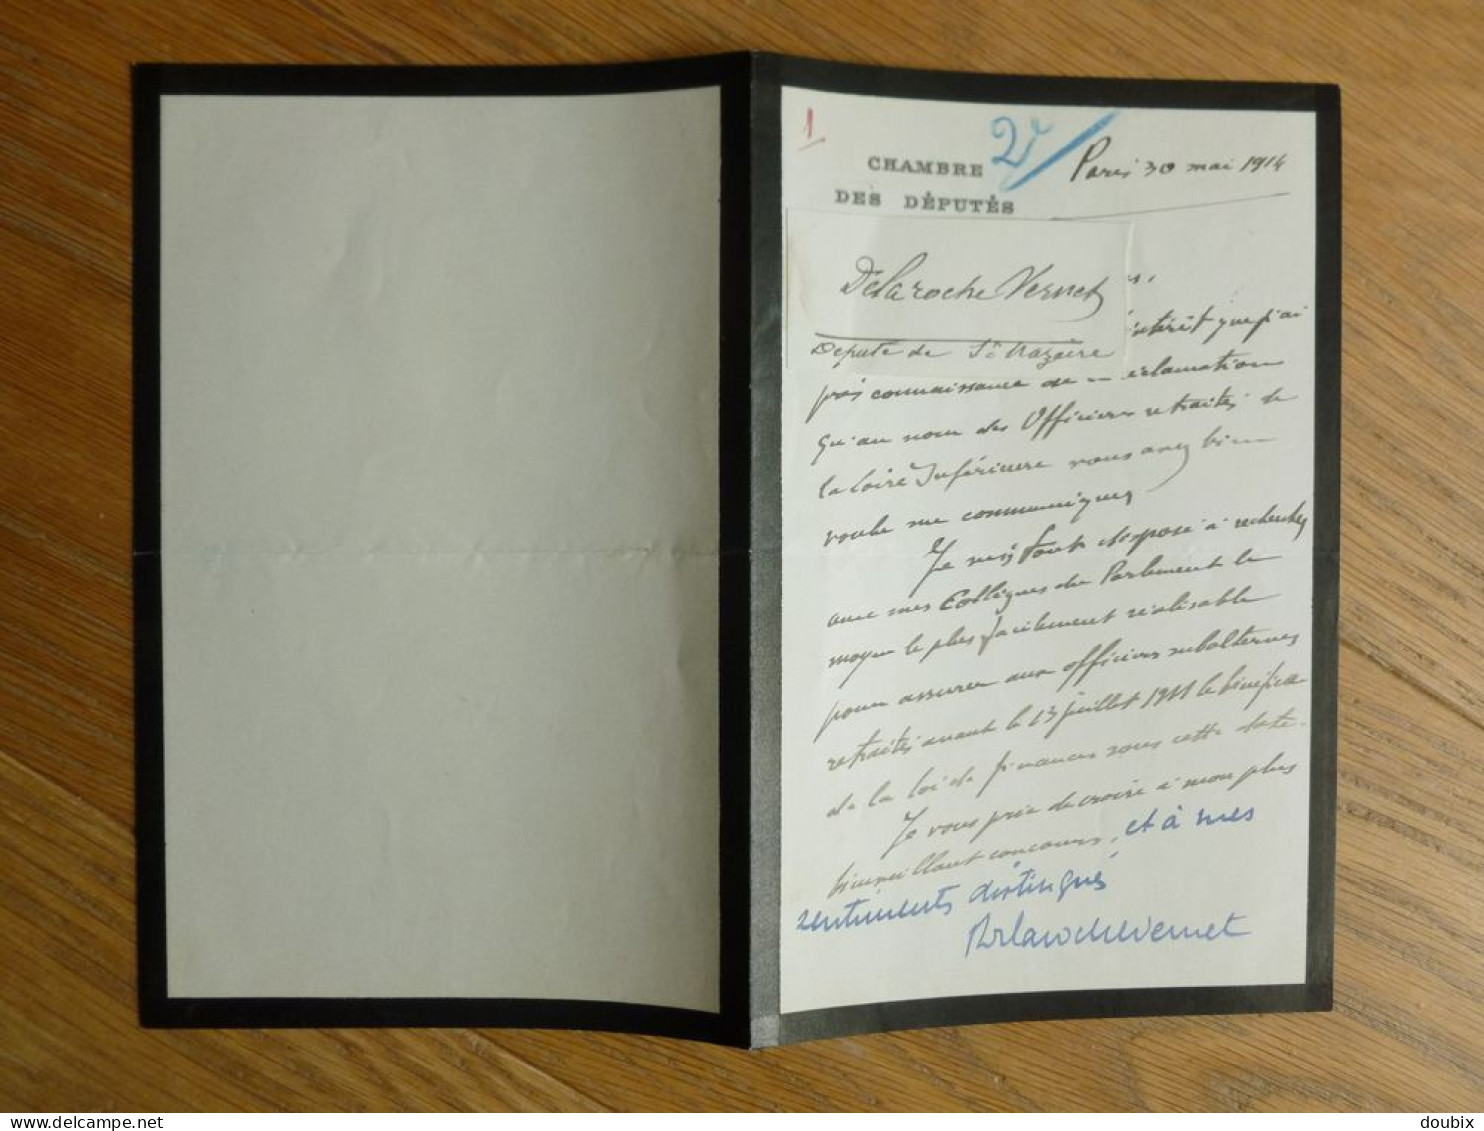 1
2
CHAMBRE
DES DÉPUTÉS
Paris 30 mai 1914
Delaroche Vernet
Député de St Nazaire
intérêt que j'ai
pris connaissance de la réclamation
qu'au nom des Officiers retraités de
la Loire Inférieure vous avez bien
voulu me communiquer
Je suis tout disposé à rechercher
avec mes Collègues du Parlement le
moyen le plus facilement réalisable
pour assurer aux officiers subalternes
retraités avant le 13 juillet 1911 le bénéfice
de la loi de finances sous cette date.
Je vous prie de croire à mon plus
bienveillant concours, et à mes
sentiments distingués
Delaroche Vernet
delcampe.net
doubix